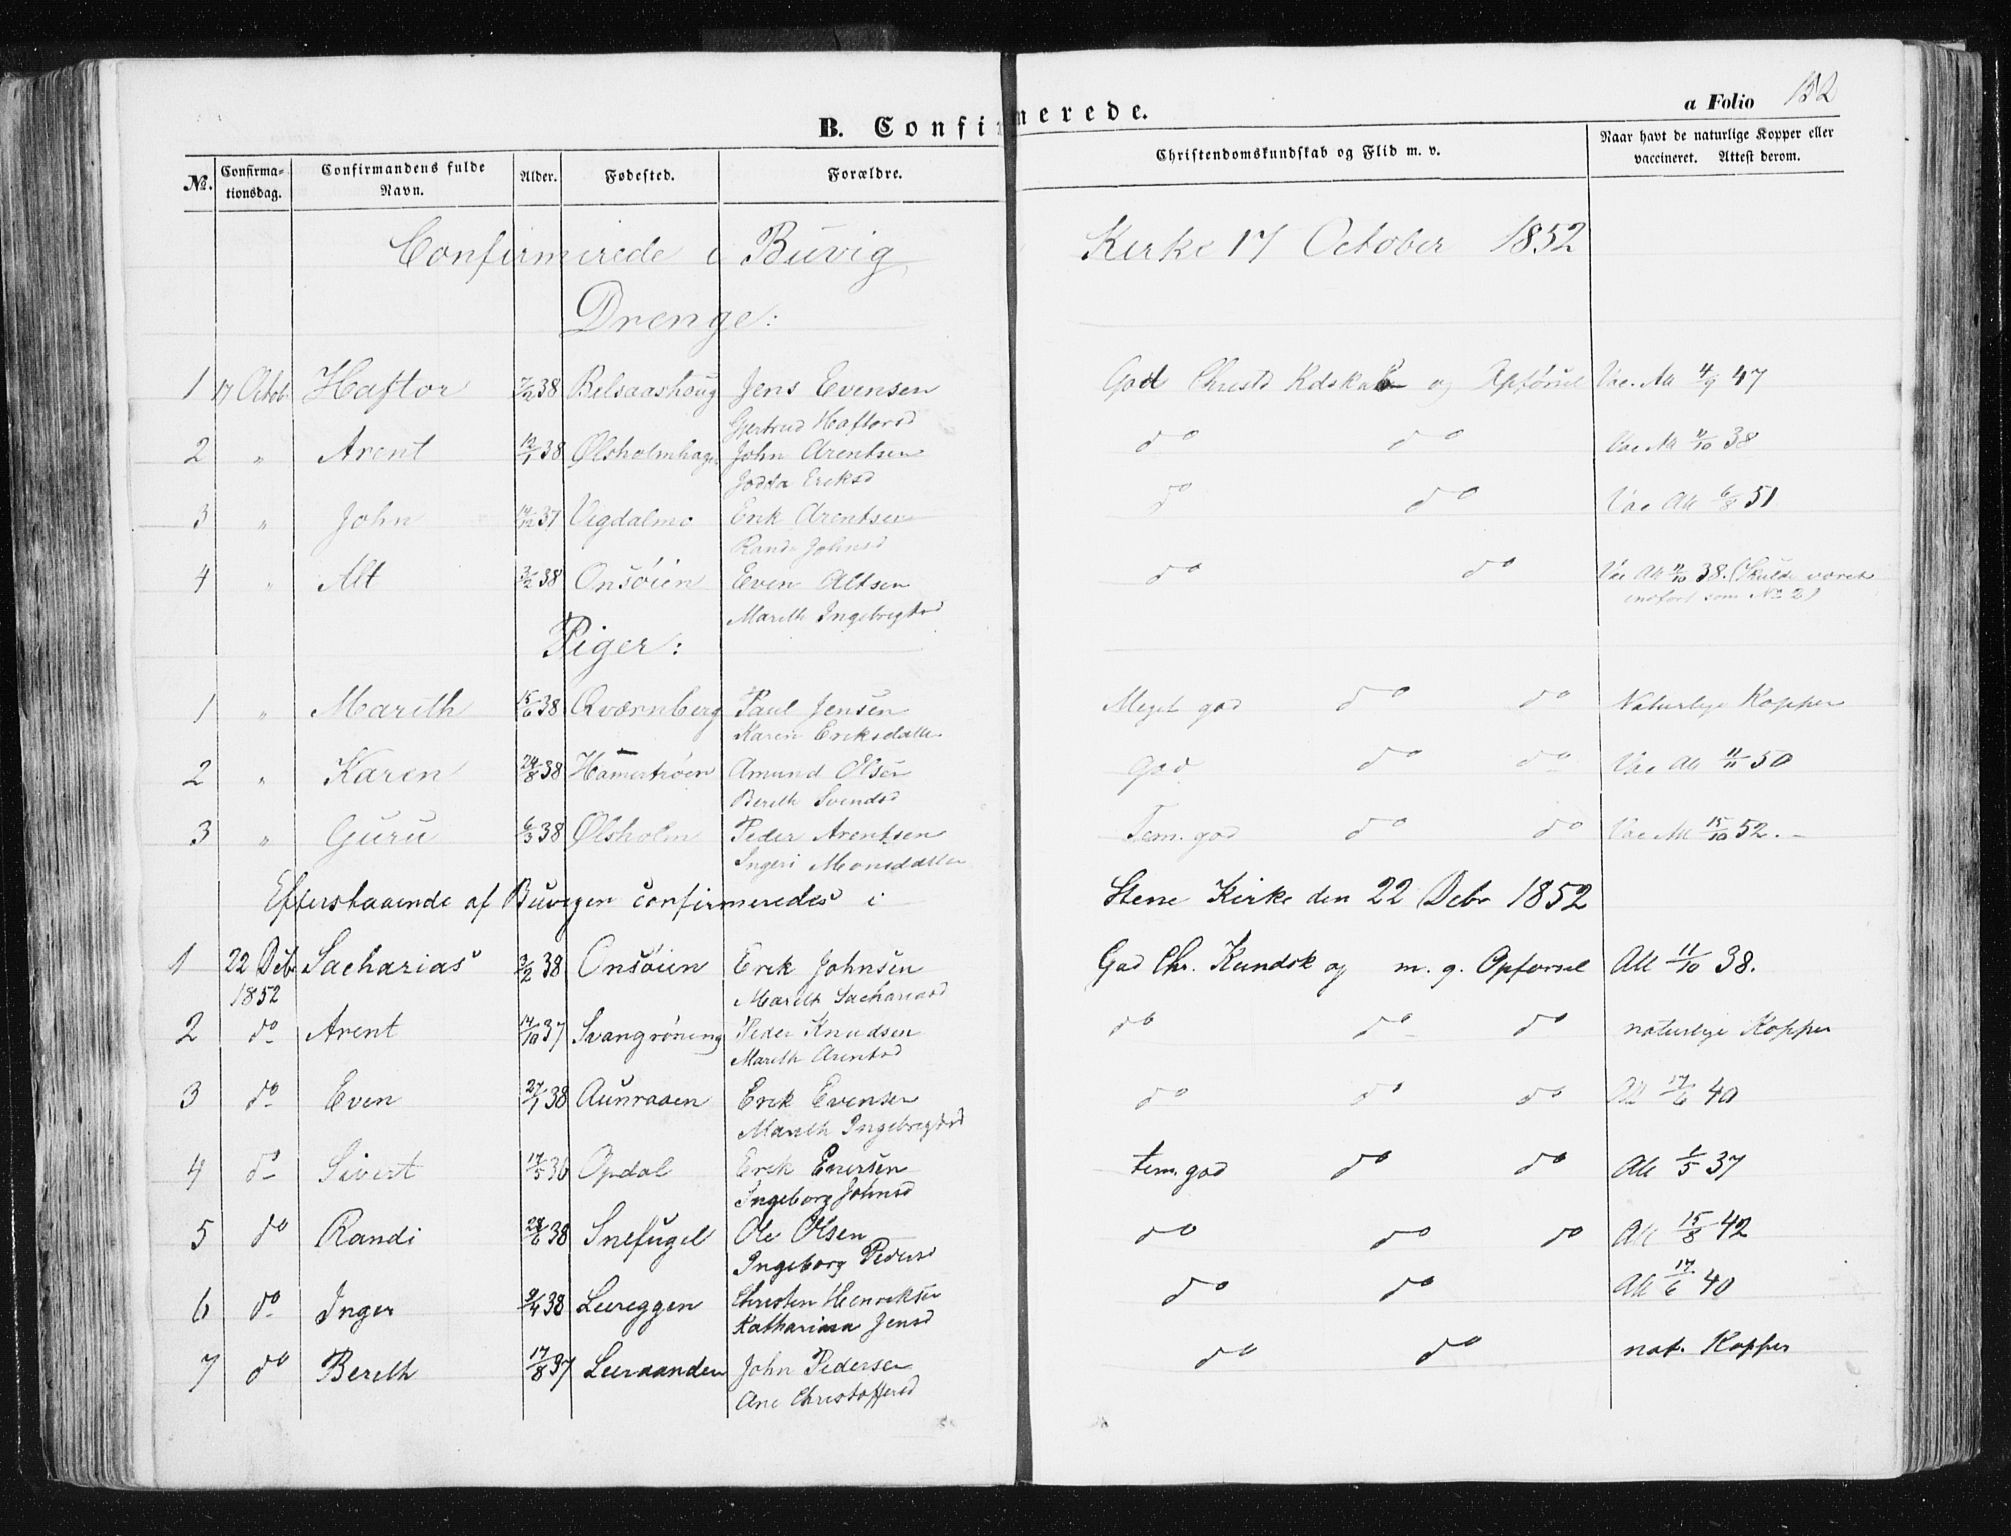 a Folio 152
B. Confirmerede.
№. Confirma-tionsdag. Confirmandens fulde Navn. Alder. Fødested. Forældre. Christendomskundskab og Flid m. v. Naar havt de naturlige Kopper eller vaccineret. Attest derom.
Confirmerede i Buvig Kirke 17 October 1852
Drenge:
1 17 Octob. Haftor 38 Belsaashoug Jens Evensen God Christd Kdskab og Opførsel Vac. Att 4/9 47
Gjertrud Haftorsd
2 " Arent 38 Ølsholmhagen John Arentsen do do Vac Att 11/10 38
Eriksd
3 " John 37 Vigdalmo Erik Arentsen do do Vac Att 6/8 51
Randi Johnsd
4 " Alt 3/2 38 Onsøien Even Altsen do do Vac Att 11/10 38. (Skulde været
Mareth Ingebrigtsd indført som No 2)
Piger:
1 " Mareth 15/6 38 Qværnberg Paul Jensen Meget god do do Naturlige Kopper
Karen Eriksdatter
2 " Karen 24/8 38 Hamertrøen Amund Olsen God do do Vac Att 11/11 50
Bereth Svendsd
3 " Guru 6/3 38 Ølsholm Peder Arentsen Tem. god do do Vac Att 15/10 52.
Ingeri Monsdatter
Efterstaaende af Buvigen confirmeredes i Stene Kirke den 22 Debr 1852
1 22 Deb Sacharias 3/2 38 Onsøien Erik Johnsen God Chr. Kundsk og m. g. Opførsel Att 11/10 38.
1852 Mareth Sachariasd
2 do Arent 14/10 37 Svangrøning Peder Knudsen do do do naturlige Kopper
Mareth Arentsd
3 do Even 27/1 38 Aunraaen Erik Evensen do do do Att 17/6 40
Mareth Ingebrigtsd
4 do Sivert 17/5 36 Opdal Erik Enersen tem. god do do Att 1/5 37
Ingeborg Johnsd
5 do Randi 28/6 38 Snefugel Ole Olsen do do do Att 15/8 42
Ingeborg Pedersd
6 do Inger 9/4 38 Leereggen Christen Henriksen do do Att 17/6 40
Katharina Jensd
7 do Bereth 17/8 37 Leeraanden John Pedersen do do nat. Kopper
Ane Christoffersd